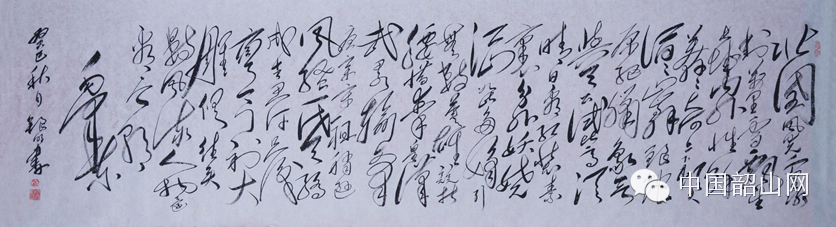 北国风光千里
冰封万里雪飘望
长城内外惟余莽
莽大河上下顿失
滔滔山舞银蛇
原驰蜡象欲
与天公试比高须
晴日看红装素
裹分外妖娆
江山如此多娇引
无数英雄竞折
腰惜秦皇汉
武略输文采
唐宗宋祖稍逊
风骚一代天骄
成吉思汗只识
弯弓射大
雕俱往矣
数风流人物还
看今朝
毛泽东
癸巳秋月
中国韶山网